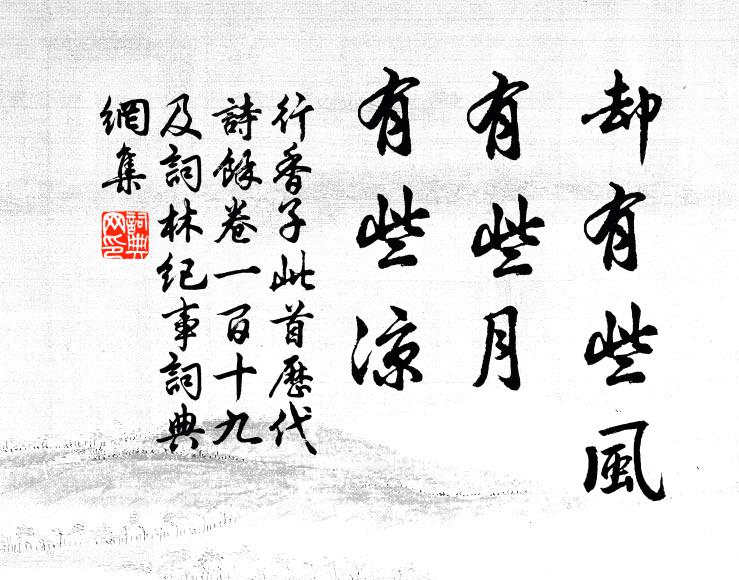 却有些風
有些月
有些涼
行香子此首歷代
詩餘卷一百十九
及詞林紀事詞典
網集
詞典网印